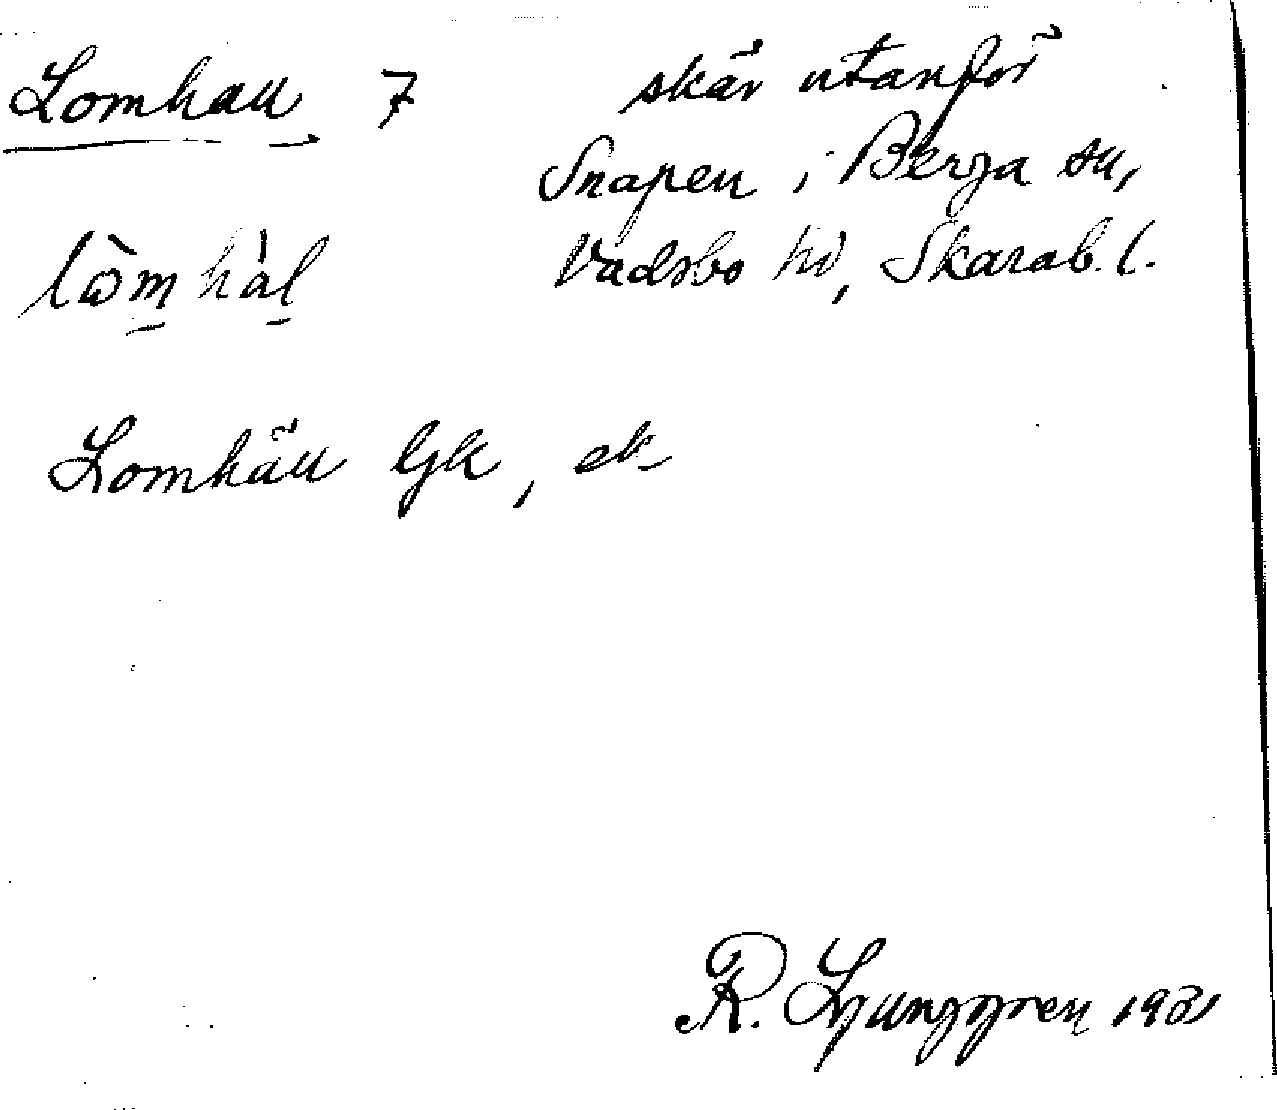 Lomhall 7 skär utanför
Snapen i Berga sn,
lòmhàl Vadsbo hd, Skarab. l.
Lomhäll Gk, ek
R. Ljunggren 1931